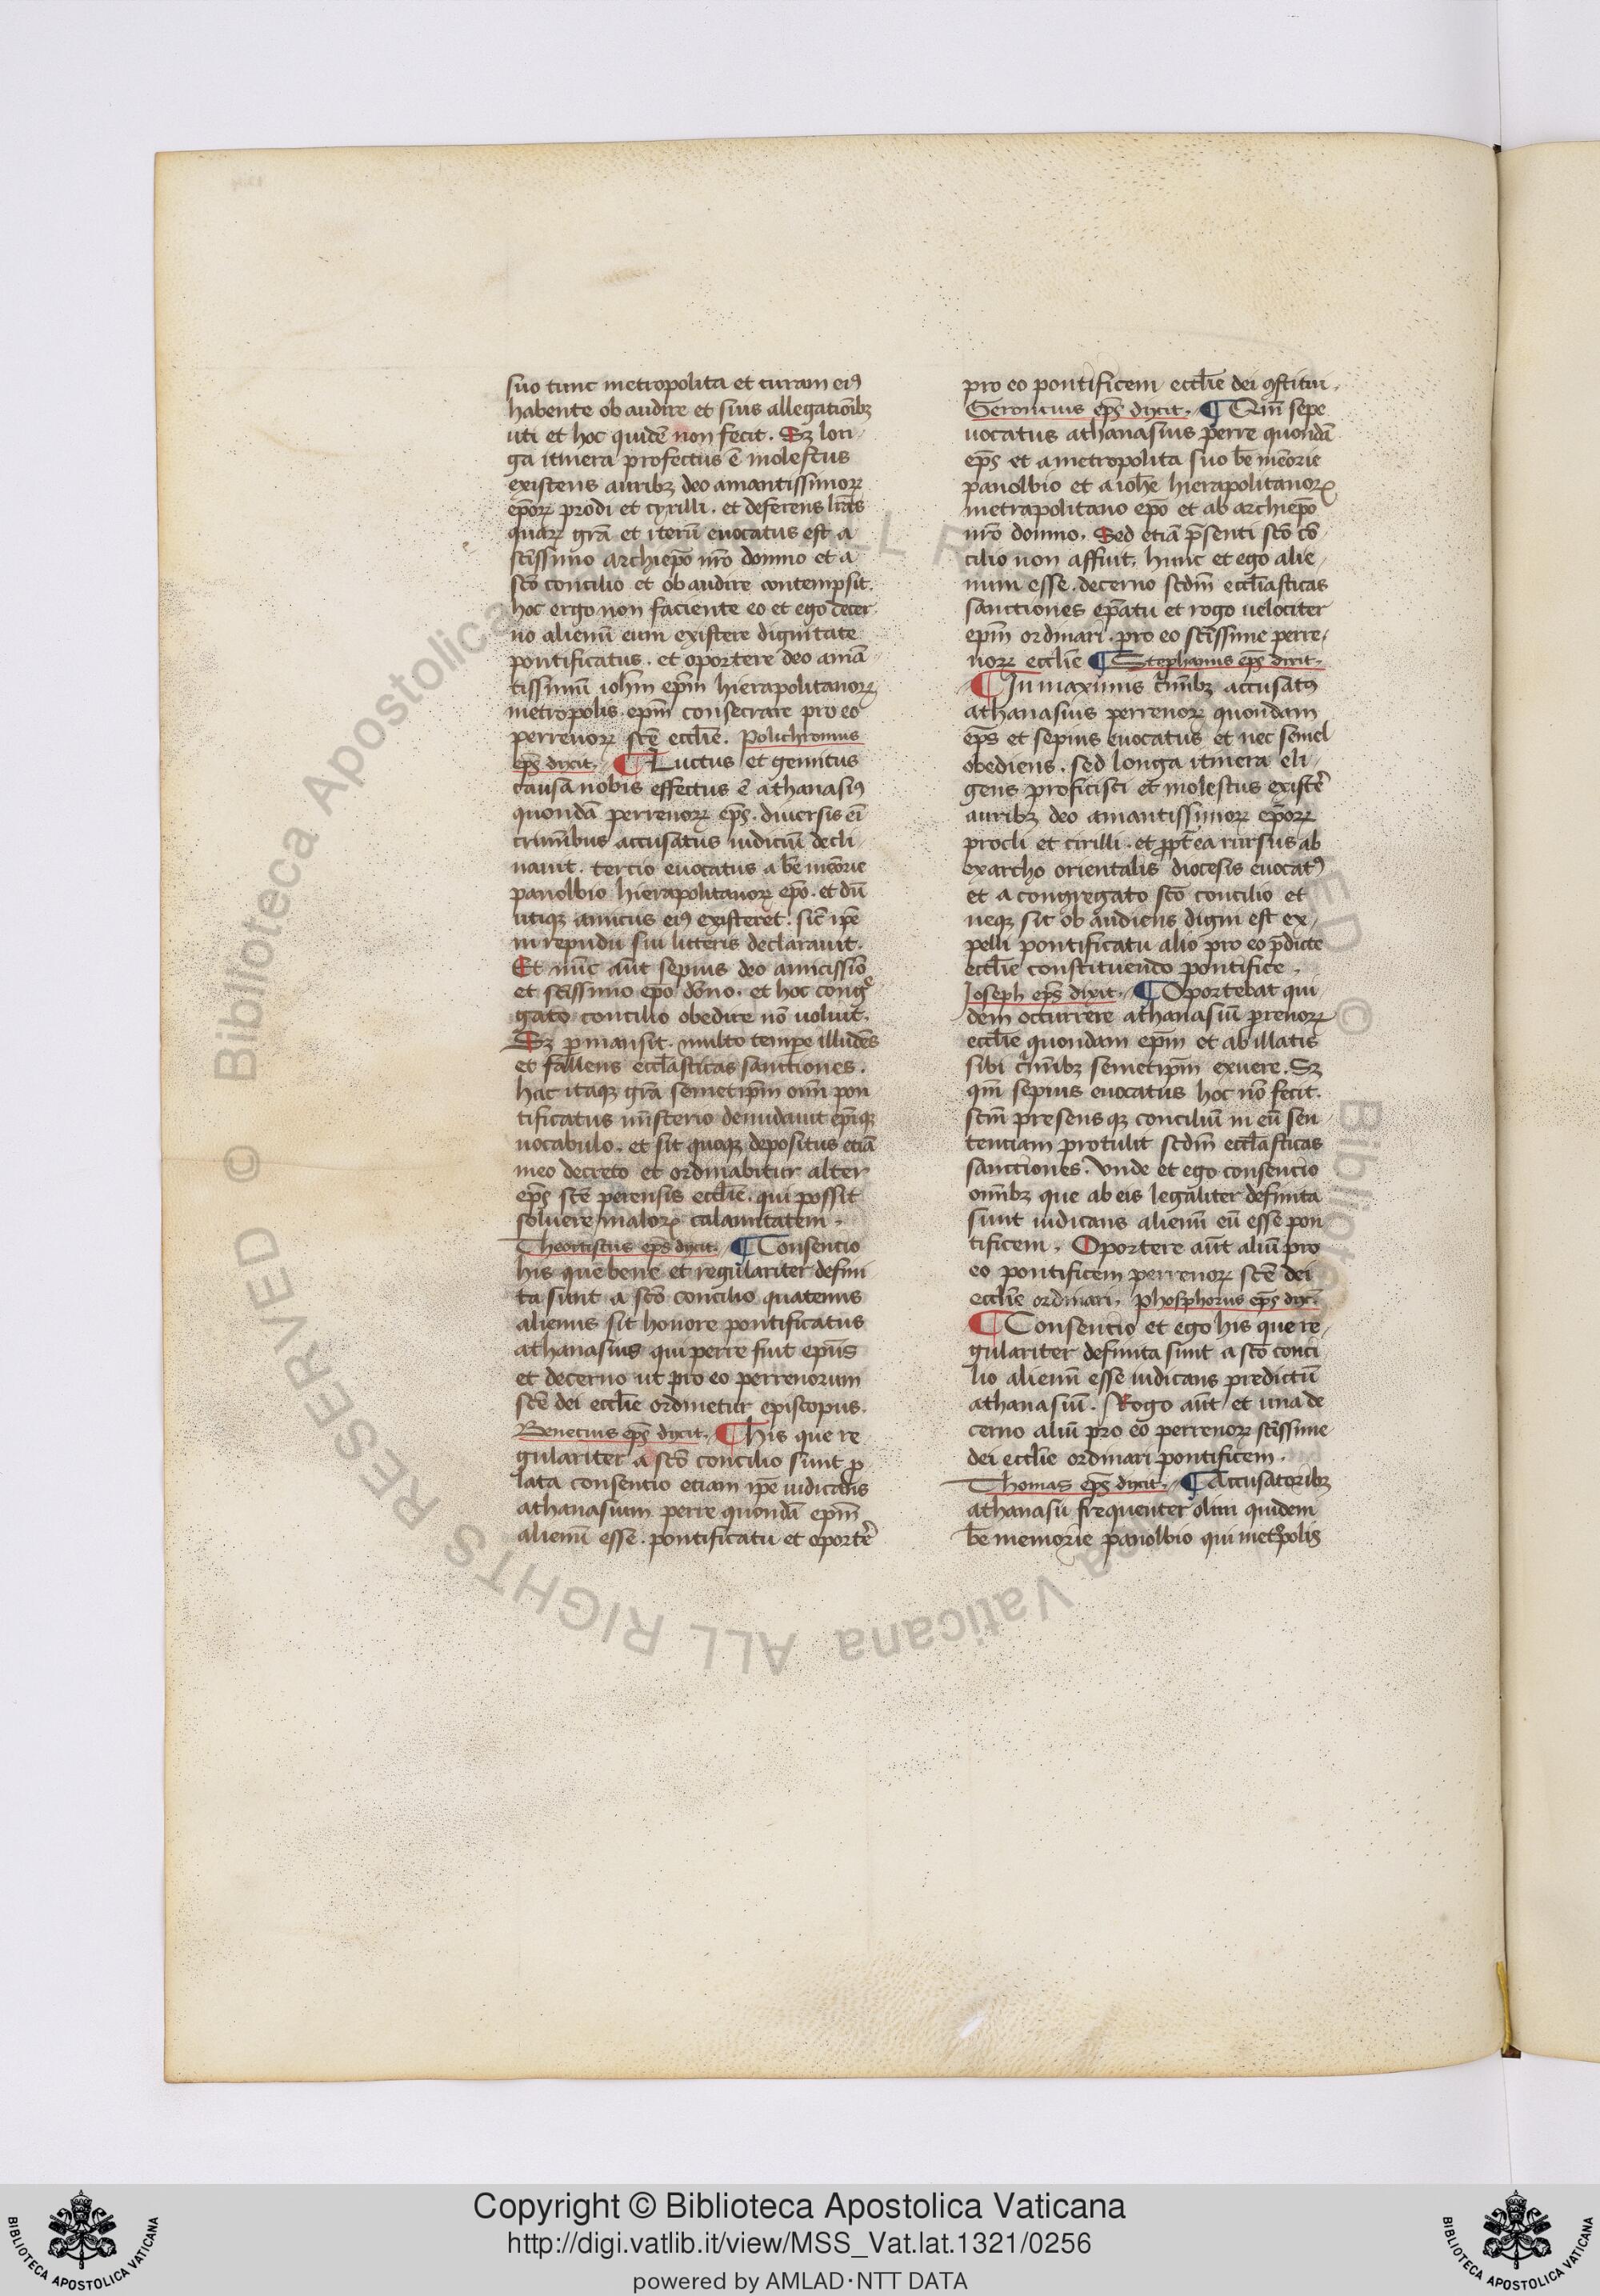 suo tunc metropolita et curam eiꝰ
habente ob audire et suis allegatiōibꝫ
uti et hoc quidē non fecit. Sꝫ lon
ga itinera profectus ē molestus
existens auribꝫ deo amantissimoꝝ
ep̄oꝝ prodi et cyrilli. et deferens lr̄as
quaꝝ gr̄a et iterū euocatus est a
sc̄issimo archiep̄o nr̄o domno et a
sc̄o concilio et ob audire contempsit.
hoc ergo non faciente eo et ego decer
no alienū eum existere dignitate
pontificatus. et oportere deo amā
tissimū ioh̄m ep̄m hierapolitanoꝝ
metropolis ep̄m consecrare pro eo
perrenoꝝ sc̄e eccl̄ie. Polichronius
ep̄s dixit. ¶ Luctus et gemitus
causa nobis effectus ē athanasiꝰ
quondā perrenoꝝ ep̄s. diuersis ei
crimībus accusatus iudiciū decli
nauit. tercio euocatus a be mēorie
panolbio hierapolitanoꝝ ep̄o. et dū
utiqꝫ amicus eiꝰ existeret. sic̄ ip̄e
in repudii sui litteris declarauit.
Et nūc aūt sepius deo amicissīo
et sc̄issimo ep̄o dōno. et hoc cong
gato concilio obedire nō uoluit.
Sꝫ ꝑmansit multo tempe illudēs
et fallens eccl̄asticas sanctiones.
hac itaqꝫ gr̄a semetip̄m om̄i pon
tificatus mīsterio denudauit ep̄iqꝫ
uocabulo. et sit quoqꝫ depositus etiā
meo decreto et ordinabitur alter
ep̄s sc̄e perensis eccl̄ie. qui possit
soluere maloꝝ calamitatem.
Theortistus ep̄s dixit. ¶ Consentio
his que bene et regulariter defini
ta sunt a sc̄o concilio quatenus
alienus sit honore pontificatus
athanasius qui perre fuit ep̄us
et decerno ut pro eo perrenorum
sc̄e dei eccl̄ie ordinetur episcopus.
Benecius ep̄s dixit. ¶ his que re
gulariter a sc̄o concilio sunt ꝓ
lata consentio etiam ip̄e iudicans
athanasium perre quondā ep̄m
alienū esse. pontificatu et oportē
pro eo pontificem eccl̄ie dei ꝯstitui.
Geroncius ep̄s dixit. ¶ Qm̄ sepe
uocatus athanasius perre quondā
ep̄s et a metropolita suo be mēorie
panolbio et a ioh̄e hierapolitanoꝝ
metrapolitano ep̄o et ab archiep̄o
nr̄o domno. Sed etiā p̄senti sc̄o cō
cilio non affuit. hunc et ego alie
num esse. decerno scd̄m eccl̄iasticas
sanctiones ep̄atu et rogo uelociter
ep̄m ordinari. pro eo sc̄issime perre
noꝝ eccl̄ie ¶ Stephanus ep̄s dixit.
¶ In maximis c̄mībꝫ accusatꝰ
athanasius perrenoꝝ quondam
ep̄s et sepius euocatus et nec semel
obediens. sed longa itinera eli
gens proficisci et molestus existē
auribꝫ deo amantissimoꝝ ep̄oꝝ
procli et cirilli. et ꝓpt̄ea rursus ab
exarcho orientalis diocesis euocatꝰ
et a congregato sc̄o concilio et
neqꝫ sic ob audiens digni est ex
pelli pontificatu alio pro eo p̄dicte
eccl̄ie constituendo pontifice.
Joseph ep̄s dixit. ¶ Oportebat qui
dem occurrere athanasiū prenoꝝ
eccl̄ie quondam ep̄m et ab illatis
sibi c̄mībꝫ semetip̄m exuere. Sꝫ
qm̄ sepius euocatus hoc nō fecit.
sc̄m presensqꝫ conciliū in eū sen
tentiam protulit scd̄m eccl̄asticas
sanctiones. Vnde et ego consencio
om̄ibꝫ que ab eis legaliter definita
sunt iudicans alienū eū esse pon
tificem. Oportere aūt aliū pro
eo pontificem perrenoꝝ sc̄e dei
eccl̄ie ordinari. Phosphorus ep̄s dix̄
¶ Consentio et ego his que re
gulariter definita sunt a sc̄o conci
lio alienū esse iudicans predictū
athanasiū. Rogo aūt et una de
cerno aliū pro eo perrenoꝝ sc̄issime
dei eccl̄ie ordinari pontificem.
Thomas ep̄s dixit. ¶ Accusatoribꝫ
athanasii frequenter olim quidem
be memorie panolbio qui met̄polis
Copyright © Biblioteca Apostolica Vaticana
http://digi.vatlib.it/view/MSS_Vat.lat.1321/0256
powered by AMLAD·NTT DATA
BIBLIOTECA APOSTOLICA VATICANA
BIBLIOTECA APOSTOLICA VATICANA